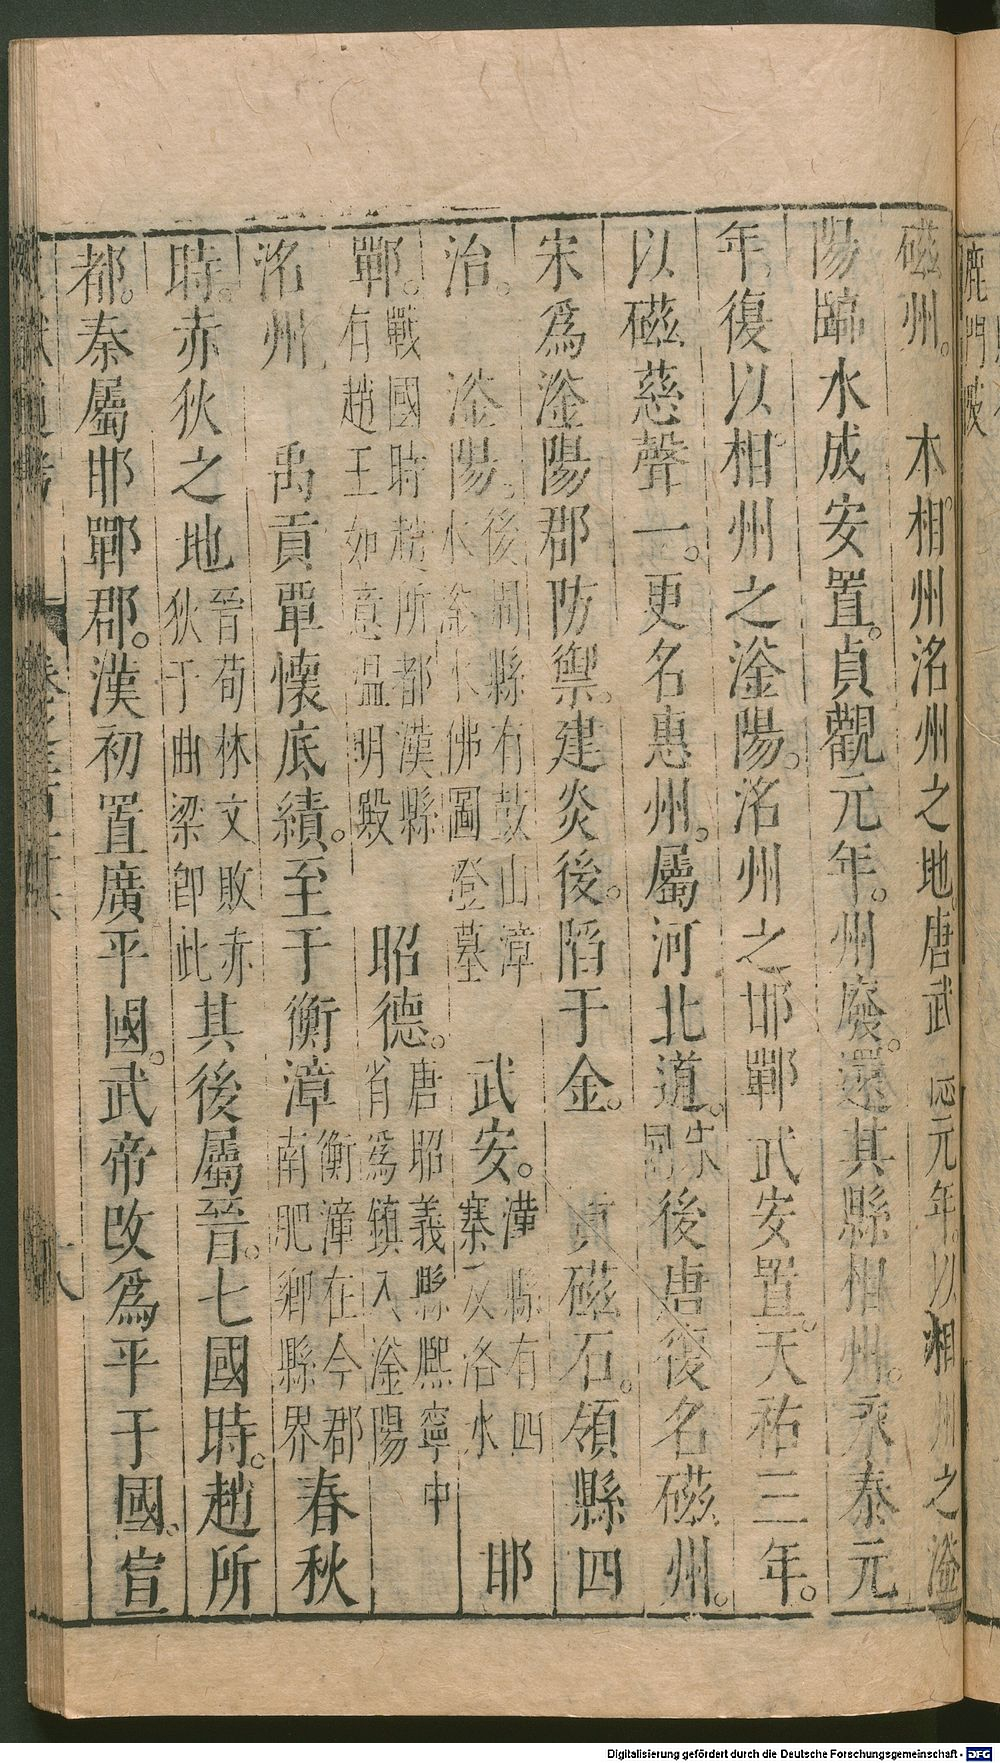 磁州。 本相州洺州之地。唐武 元年。以相州之滏
陽臨水成安置。貞觀元年。州廢。還其縣相州。永泰元
年。復以相州之滏陽。洺州之邯鄲武安置。天祐三年。
以磁慈聲一。更名惠州。屬河北道。後唐復名磁州。
宋爲滏陽郡防禦。建炎後。陷于金。 貢磁石。領縣四
治。 滏陽。後周縣有鼓山漳
水滏水佛圖澄墓 武安。漢縣有四
寨又洺水 邯
鄲。戰國時趙所都漢縣
有趙王如意溫明殿 昭德。唐昭義縣熙寧中
省爲鎮入滏陽
洺州 禹貢覃懷底績。至于衡漳衡漳在今郡
南肥鄉縣界春秋
時。赤狄之地晉荀林父敗赤
狄于曲梁卽此其後屬晉。七國時。趙所
都。秦屬邯鄲郡。漢初置廣平國。武帝改爲平于國。宣
鹿門
Digitalisierung gefördert durch die Deutsche Forschungsgemeinschaft - DFG